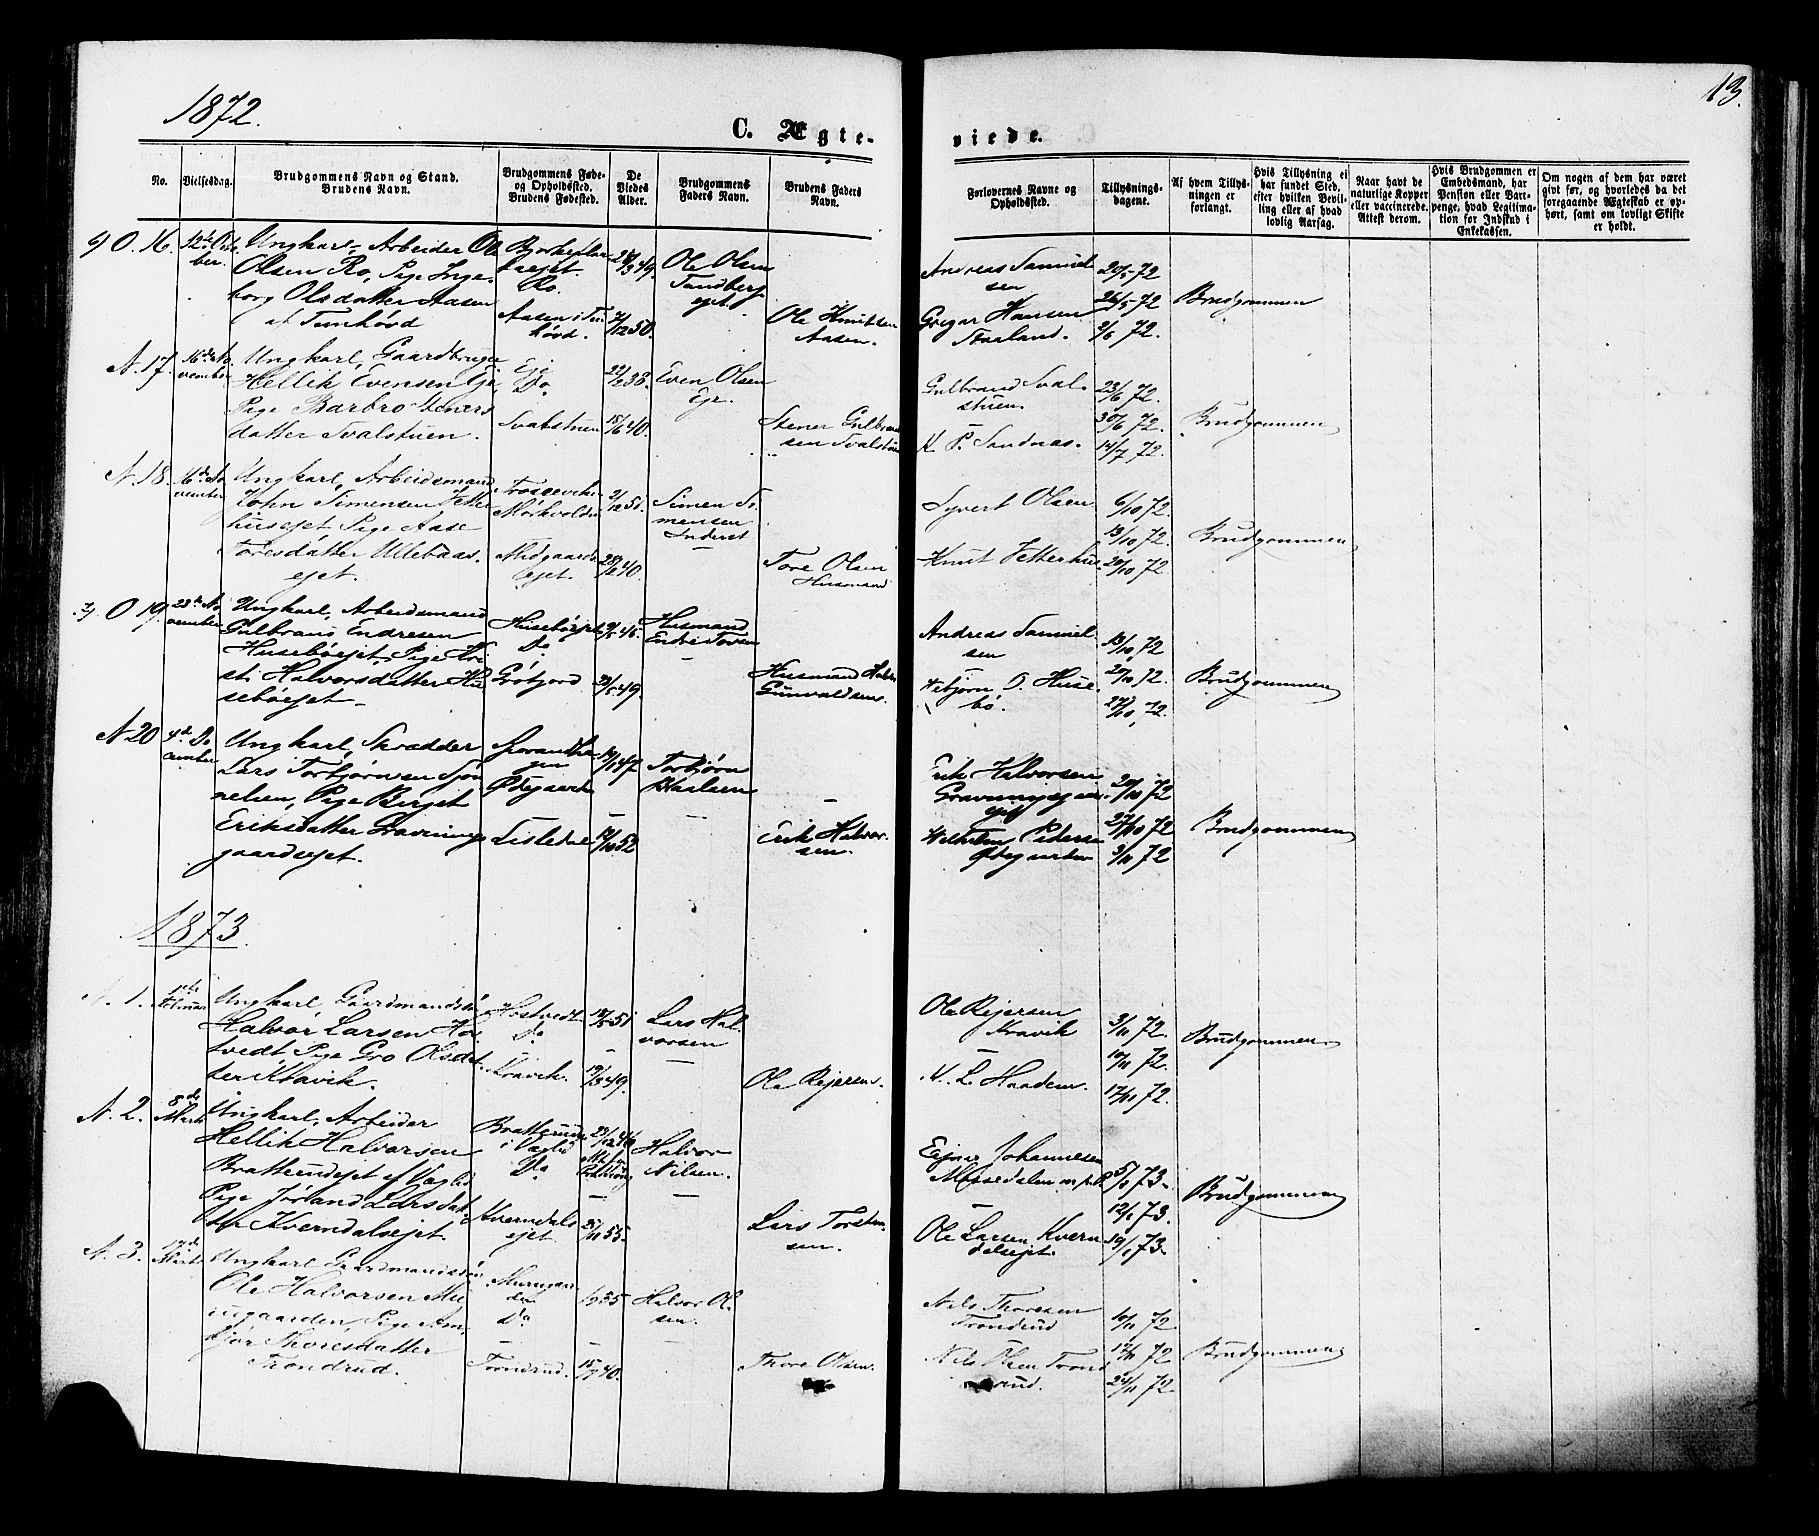 1872.
13.
C. Ægte-
viede.
No.
Vielsesdag.
Brudgommens Navn og Stand.
Brudens Navn.
Brudgommens Føde-
og Opholdssted.
Brudens Fødested.
De
Viedes
Alder.
Brudgommens
Faders Navn.
Brudens Faders
Navn.
Forlovernes Navne og
Opholdssted.
Tillysnings-
dagene.
Af hvem Tillys-
ningen er
forlangt.
Hvis Tillysning ei
har fundet Sted,
efter hvilken Bevil-
ling eller af hvad
lovlig Aarsag.
Naar havt de
naturlige Kopper
eller vaccinerede.
Attest derom.
Hvis Brudgommen er
Embedsmand, har
Pension eller Vart-
penge, hvad Legitima-
tion for Indskud i
Enkekassen.
Om nogen af dem har været
gift før, og hvorledes da det
foregaaende Ægteskab er op-
hørt, samt om lovligt Skifte
er holdt.
O. 16.
12te Octo
ber.
Ungkarl Arbeider Ole
Olsen Ro, Pige Inge-
borg Olsdatter Aasen
af Tunhövd
Ro.
Aasen i Tun
hövd.
49.
7/12 50.
Ole Olsen
Ole Knutsen
Aasen.
Andreas Samuel
sen
Gregar Hansen
Traaland.
20/5 72
26/5 72
2/6 72.
Brudgommen
N. 17.
16de No
vember
Ungkarl, Gaardbruger
Hellik Evensen Eje,
Pige Barbro Steners
datter Svalstuen.
Eje
Do
Svalstuen
22/2 38.
15/6 40.
Even Olsen
Eje.
Stener Gulbrand
sen Svalstuen
Gulbrand Sval-
stuen.
K. P. Sandnas.
23/6 72.
30/6 72.
14/7 72.
Brudgommen
N. 18.
16de No
vember
Ungkarl, Arbeidsmand
John Simensen Vetter
husejet, Pige Aase
Toresdatter Ullebaas-
ejet.
Midgaards
ejet.
2/12 51.
28/2 40.
Simen Si
mensen
Inderst
Tore Olsen
Husmand
Syvert Olsen
Knut Vetterhus.
6/10 72.
13/10 72.
20/10 72
Brudgommen
O 19.
23de No
vember
Ungkarl, Arbeidsmand
Gulbrand Endresen
Huseböejet, Pige Kri
sti Halvorsdatter Hu
seböejet
Huseböejet
Do
Grötjord
49.
Husmand
Endre Toresen
Husmand Halvor
Gunvaldsens.
Andreas Samuel
sen
Vebjörn O. Huse
bö.
13/10 72
20/10 72.
27/10 72.
Brudgommen
N. 20
4de De
cember
Ungkarl, Skrædder
Lars Torbjörnsen Sjön
nelsen, Pige Birget
Eriksdatter Gravnings
gaardsejet.
Ödegaarde
Lisledal
19/1 47
52
Torbjörn
Paalsen
Erik Halvor
sen.
Erik Halvorsen
Gravningsgaar
ejet
Wilhelm Pedersen
Ödegaarden
20/10 72
27/10 72
3/11 72
Brudgommen
1873.
N. 1.
Ungkarl Gaardmandssön
Halvor Larsen Hos
tvedt, Pige Gro Olsdat
ter Kravik.
Hostvedt
Do
Kravik.
51
49.
Lars Hal
vorsen
Ole Rejersen.
Ole Rejersen
Kravik
K. L. Haadem.
3/11 72.
10/11 72.
17/11 72.
Brudgommen
N. 2.
8de
Marts
Ungkarl, Arbeider
Hellik Halvorsen
Bratterudejet af Vaglid
Pige Jörand Larsdat-
ter Kverndalsejet.
Bratterud
i Vaglid
Do
Kverndals
ejet
23/12 46
55.
Halvor
Nilsen.
Lars Torsten
sen.
Ejner Johannesen
Mossedalen
Ole Larsen Kvern
dalsejet.
5/1 73.
12/1 73.
19/1 73.
Brudgommen
N. 3.
Marts
Ungkarl Gaardmandssön
Ole Halvorsen Mu
rugaarden, Pige Am-
björ Thoresdatter
Trondrud.
Murugaar
den
Do
Trondrud.
35
40.
Halvor Ol
sen.
Thore Olsen.
Nils Thoresen
Trondrud
Nils Olsen Trond
rud.
10/11 72.
17/11 72
24/11 72
Brudgommen